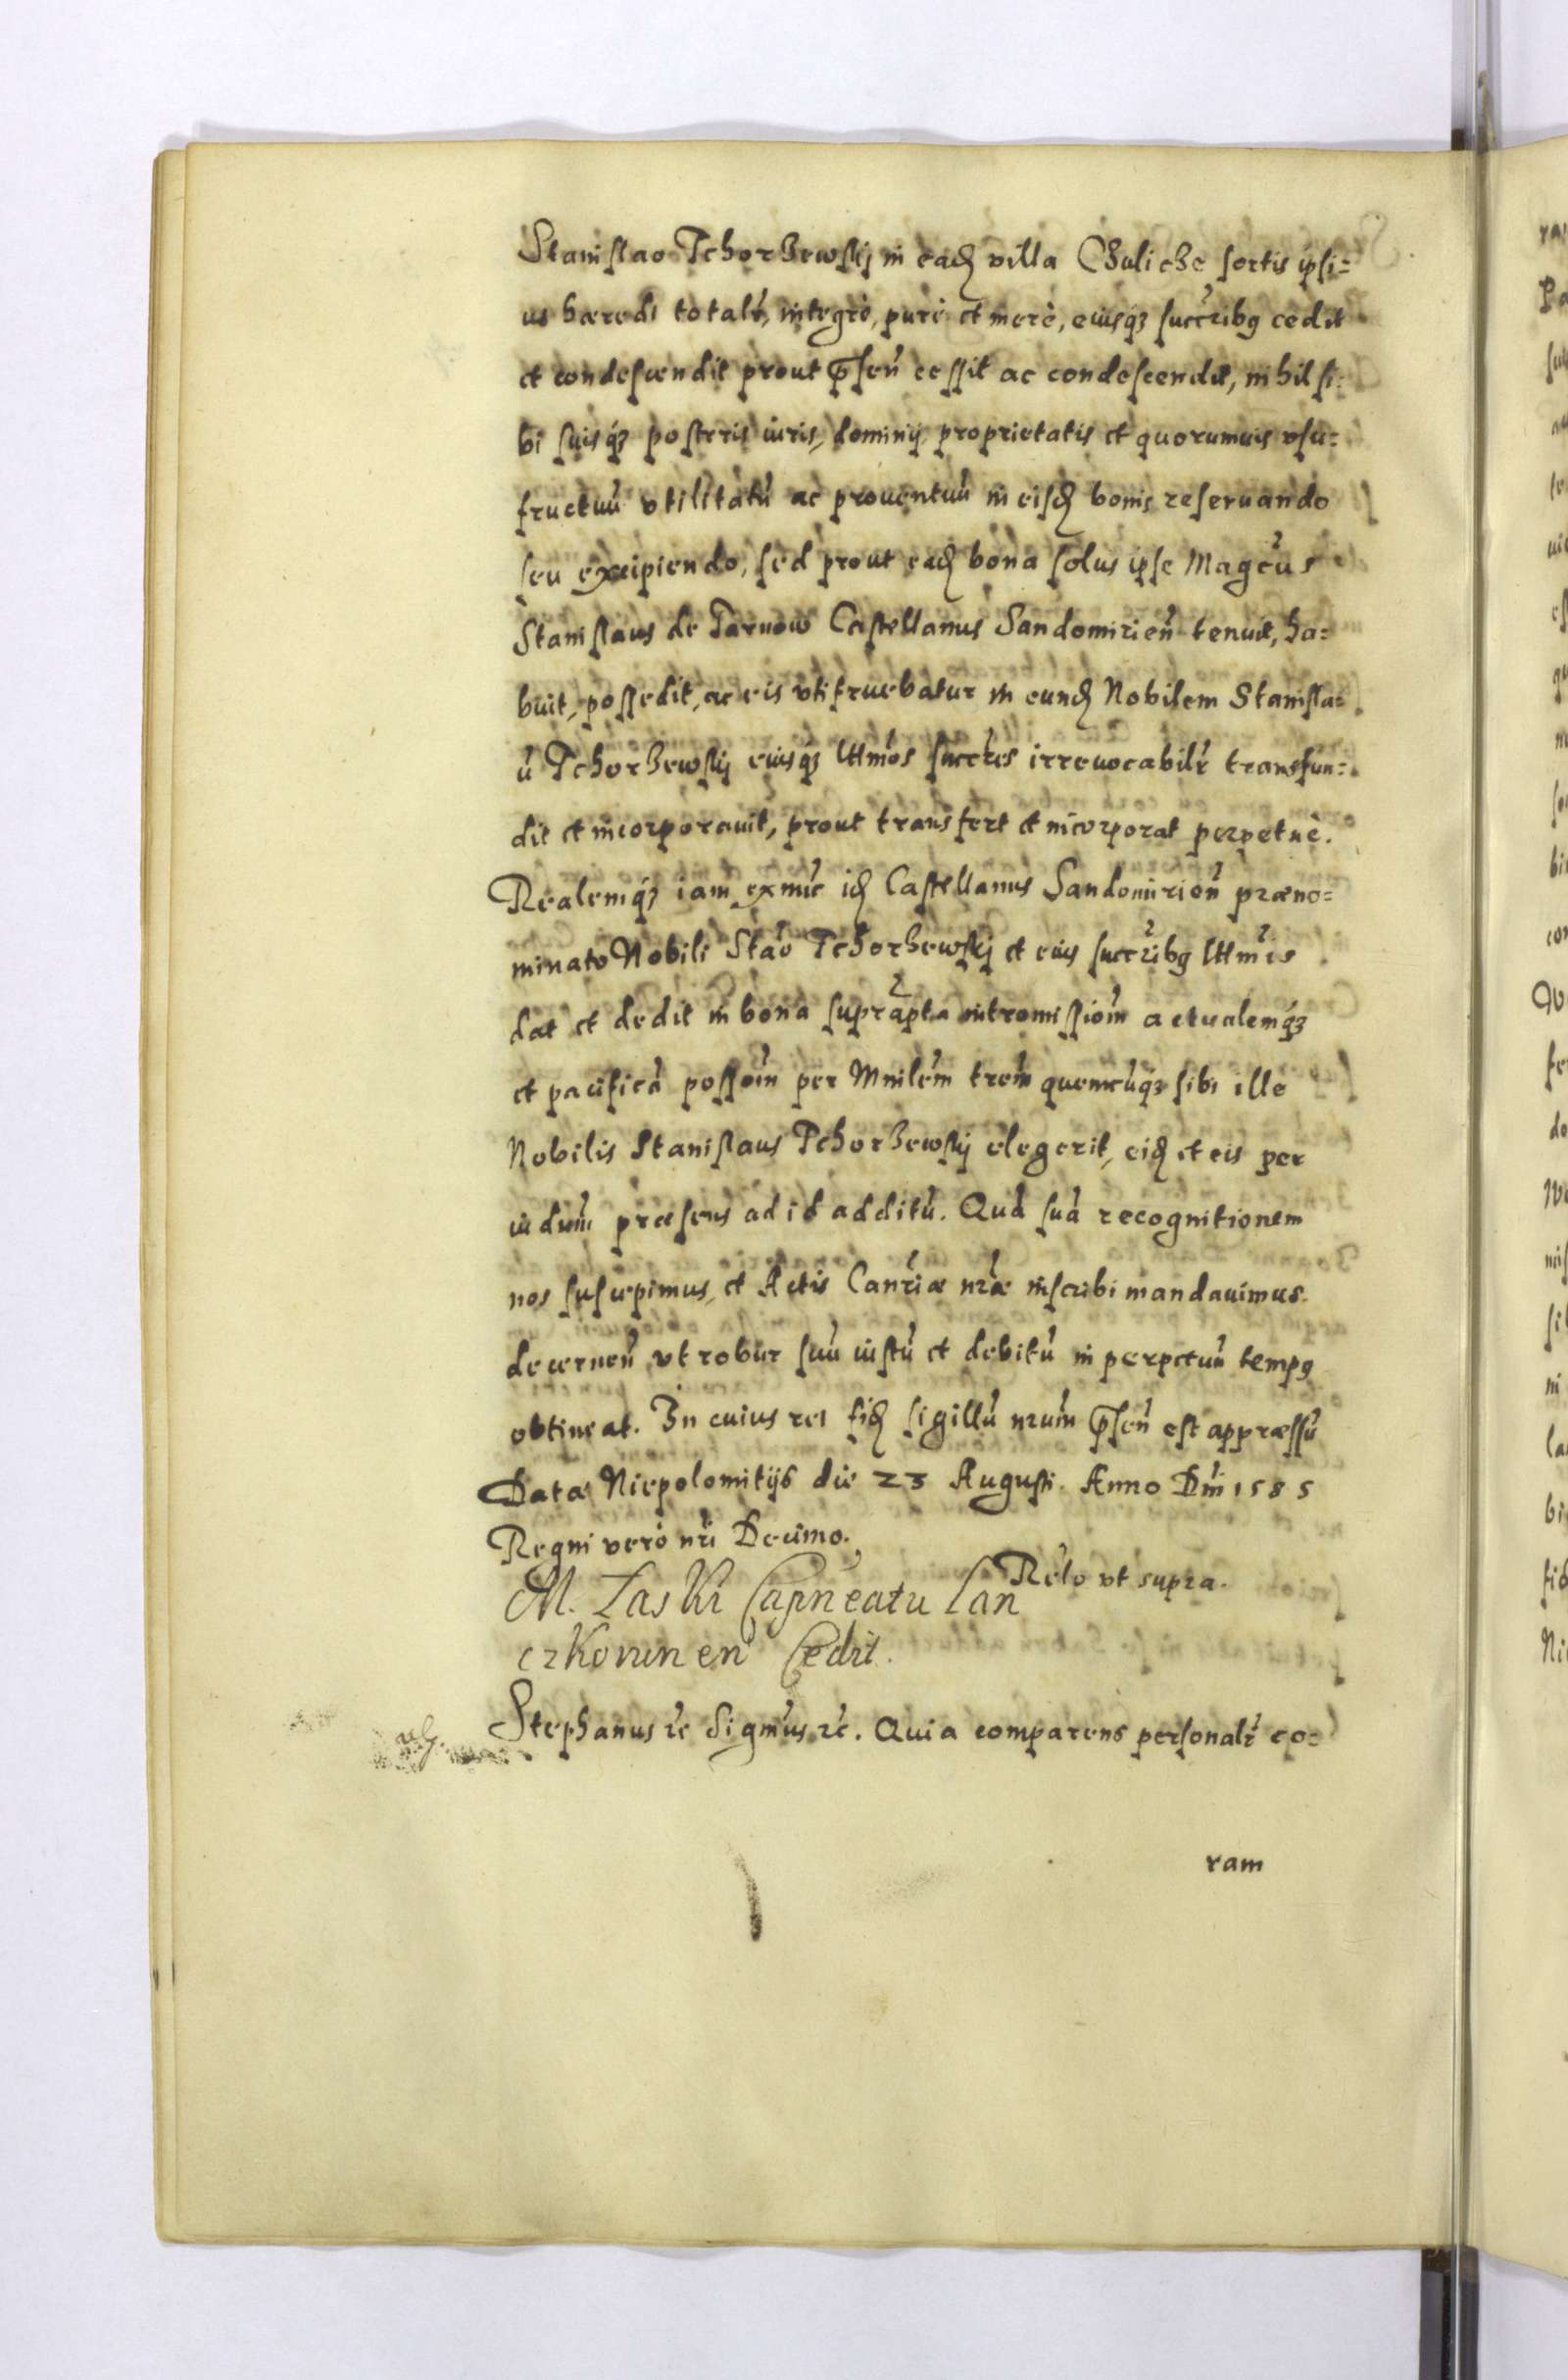 Stanislao Tchorzewskj in eadē villa Chuliche sortis ipsi=
us hæredi totalr̄, integrè, purè et merè, eiusq́ʒ succr̄ibꝯ cedit
et condescendit prout p̄sen̄ cessit ac condescendit, nihil si=
bi suisq́ʒ posteris iuris, dominij, proprietatis et quorumuis vsu=
fructuū vtilitatū ac prouentuū in eisdē bonis reseruando
seu excipiendo, sed prout eadē bona solus ipse Magc̄us
Stanislaus de Tarnow Castellanus Sandomirien̄ tenuit, ha=
buit, possedit, ac eis vtifruebatur in eundē Nobilem Stanisla=
ū Tchorzewskij eiusq́ʒ lttimos succr̄es irreuocabilr̄ transfun=
dit et incorporauit, prout transfert et incorporat perpetuè.
Realemq́ʒ iam ex nūc idē Castellanus Sandomirien̄ præno=
minato Nobili Stao Tchorzewskj et eius succr̄ibꝯ lttimis
dat et dedit in bona suprapta intromissiom̄ actualemq́ʒ
et pacificā possom̄ per Mnilem̄ trem̄ quemcūq́ʒ sibi ille
Nobilis Stanislaus Tchorzewskij elegerit, eidē et eis per
iudm̄ præsens ad id additū. Quā suā recognitionem
nos suscepimus, et Actis Canr̄iæ nr̄æ inscribi mandauimus
decernen̄ vt robur suū iustū et debitū in perpetuū tempꝯ
obtineat. In cuius rei fidē sigillū nrum̄ p̄sen̄ est appræssū
Datæ Niepolomitijs die 23 Augusti. Anno Dm̄i 1585
Regni vero nr̄i Decimo.
Relo vt supra.
M. Laski Capneatu Lan
czkorunen̄ Cedit.
Stephanus ꝛc Sigm̄us ꝛc. Quia comparens personalr̄ co=
ram